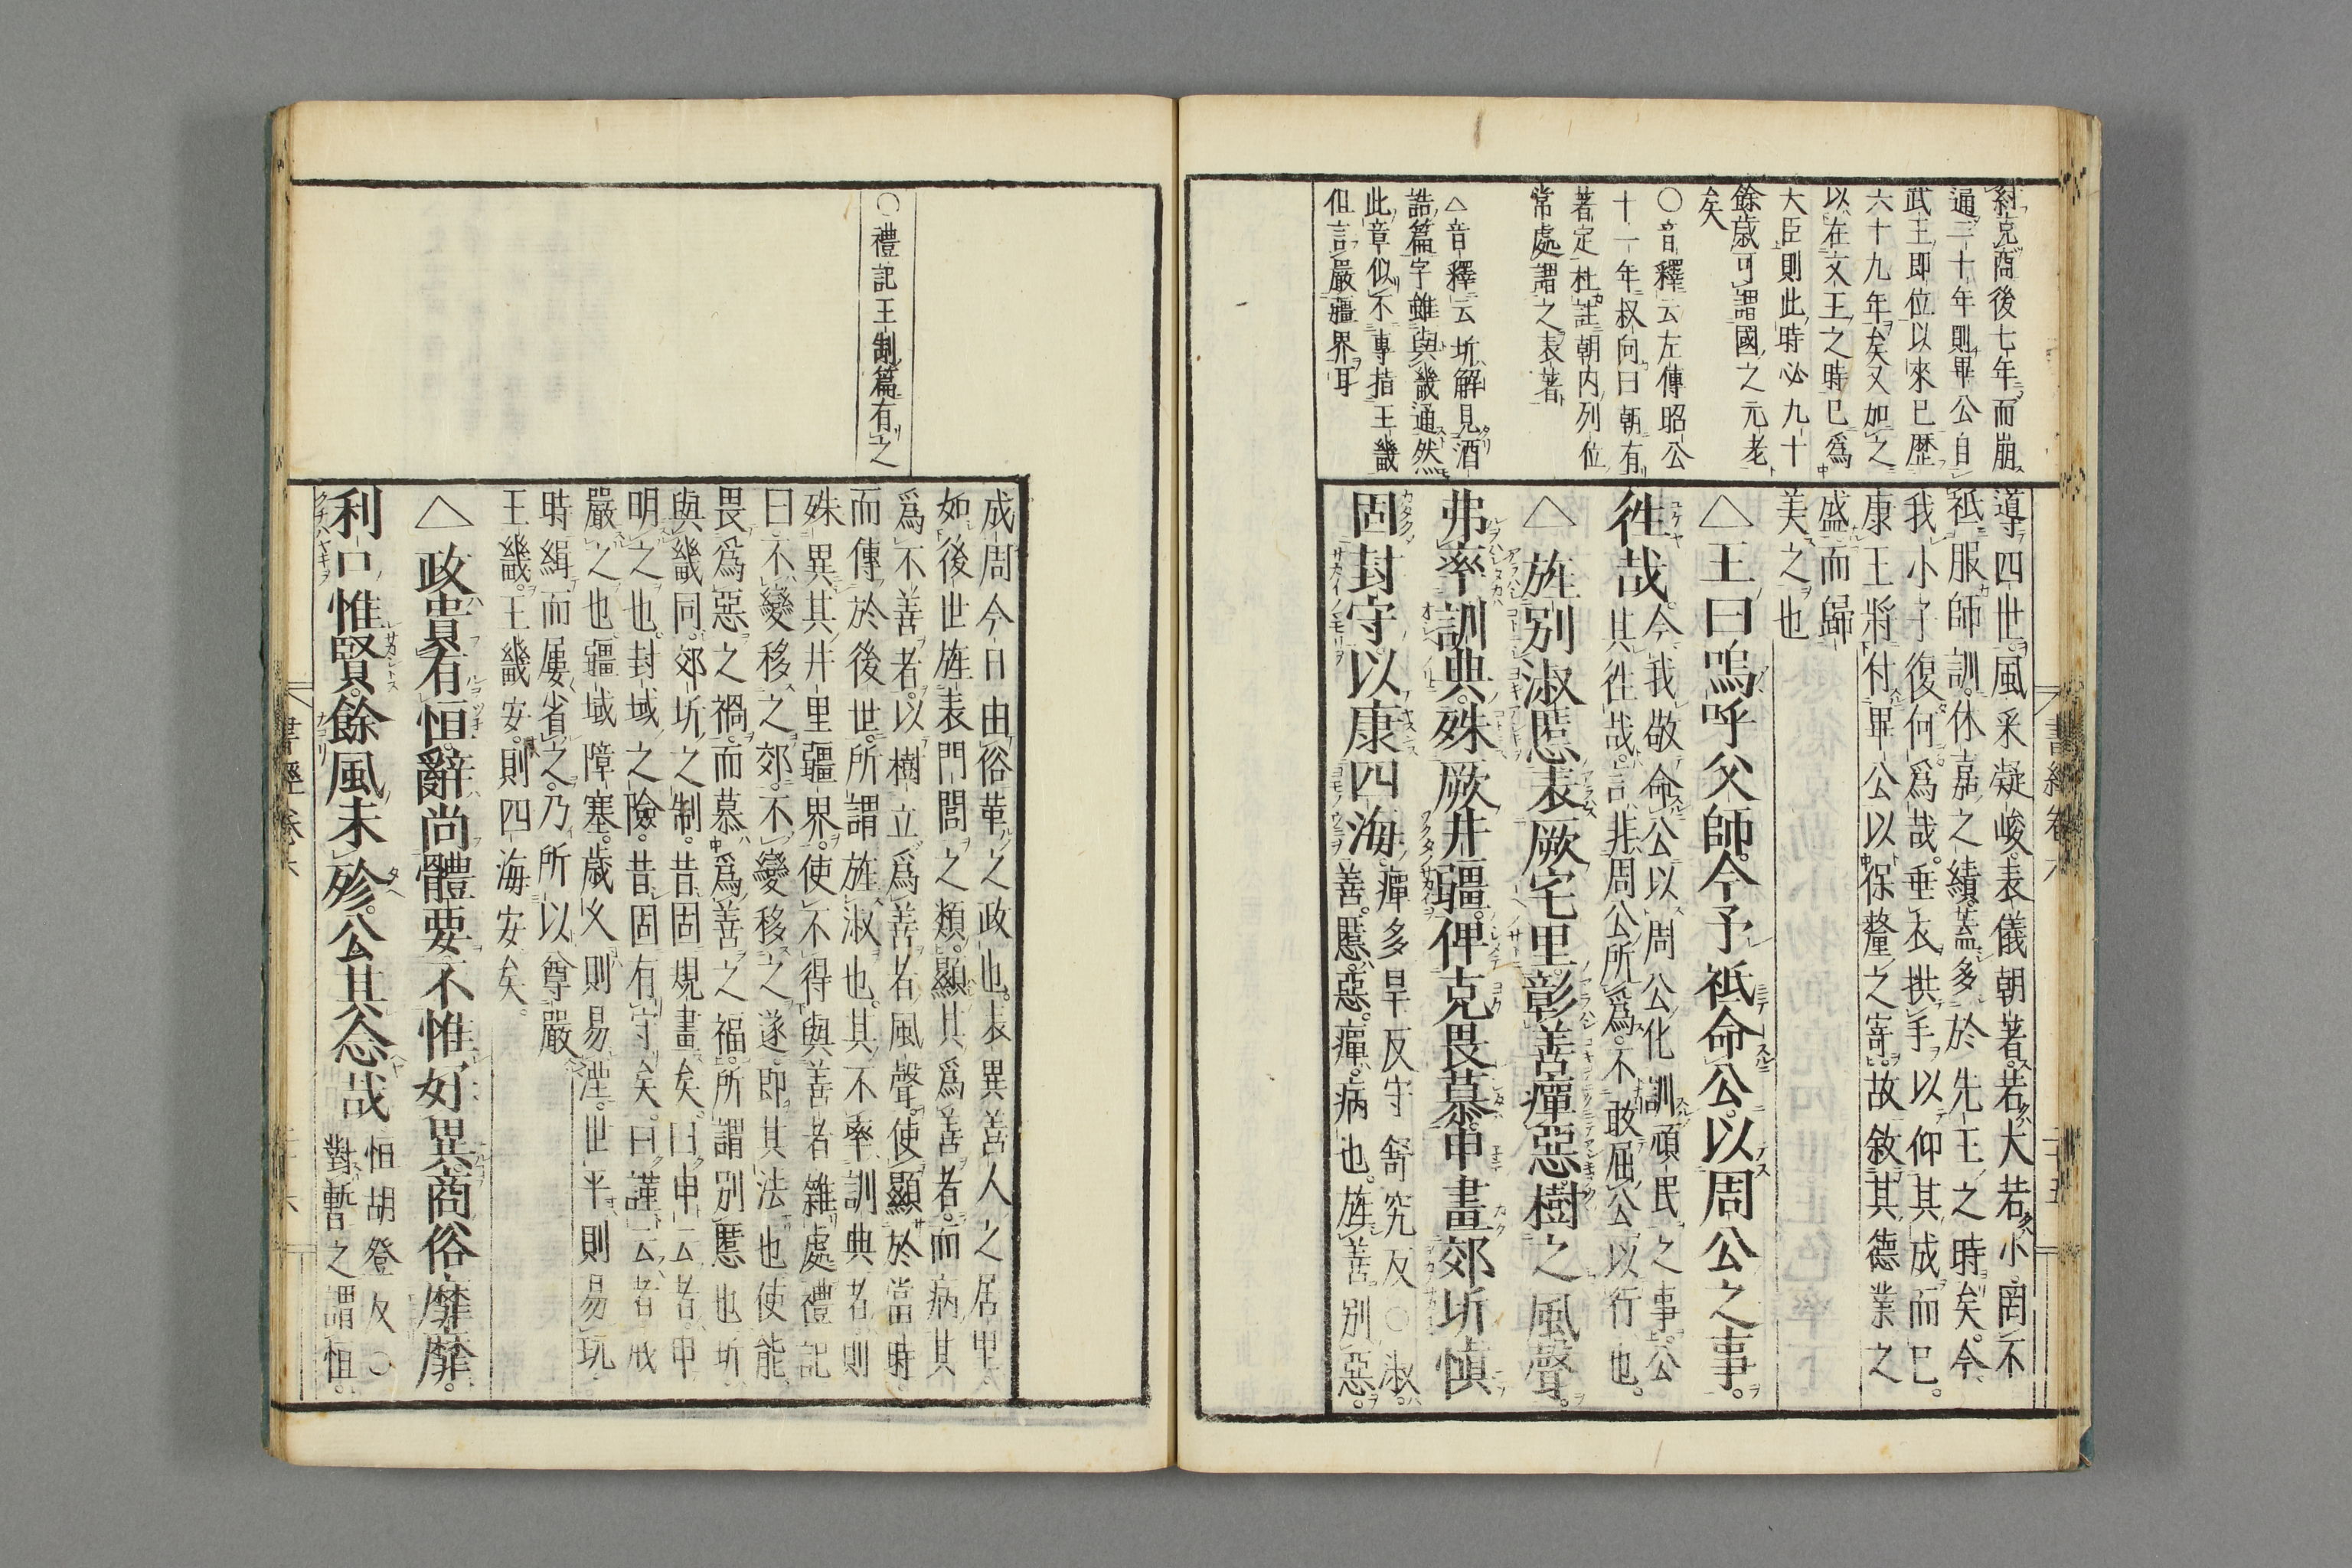 紂克商後七年而崩
通三十年則畢公自
武王即位以來已歷
六十九年矣又加之
以在文王之時已爲
大臣則此時必九十
餘歳可謂國之元老
矣
〇音釋云左傳昭公
十一年叔向曰朝有
著定杜註朝内列位
常處謂之表著
△音釋云圻解見酒
誥篇字雖與畿通然
此章似不專指王畿
但言嚴疆界耳
導四世風采凝峻表儀朝著若大若小罔不
祗服師訓休嘉之績蓋多於先王之時矣今
我小子復何爲哉垂衣拱手以仰其成而已
康王將付畢公以保釐之寄故敘其德業之
盛而歸
美之也
△王曰嗚呼父師今予祗命公以周公之事
徃哉
今我敬命公以周公化訓頑民之事公
其徃哉言非周公所爲不敢屈公以行也
△旌別淑慝表厥宅里彰善癉惡樹之風聲
弗率訓典殊厥井疆俾克畏慕申畫郊圻慎
固封守以康四海
癉多旱反守舒究反〇淑
善慝惡癉病也旌善別惡
書經卷六
二十五
〇禮記王制篇有之
成周今日由俗革之政也表異善人之居里
如後世旌表門閭之類顯其爲善者而病其
爲不善者以樹立爲善者風聲使顯於當時
而傳於後世所謂旌淑也其不率訓典者則
殊異其井里疆界使不得與善者雜處禮記
曰不變移之郊不變移之遂即其法也使能
畏爲惡之禍而慕爲善之福所謂別慝也圻
與畿同郊圻之制昔固規畫矣曰申云者申
明之也封域之險昔固有守矣曰謹云者戒
嚴之也疆域障塞歳久則易湮世平則易玩
時緝而屢省之乃所以尊嚴
王畿王畿安則四海安矣
△政貴有恒辭尚體要不惟好異商俗靡靡
利口惟賢餘風未殄公其念哉
恒胡登反〇
對暫之謂恒
書經卷六
二十六